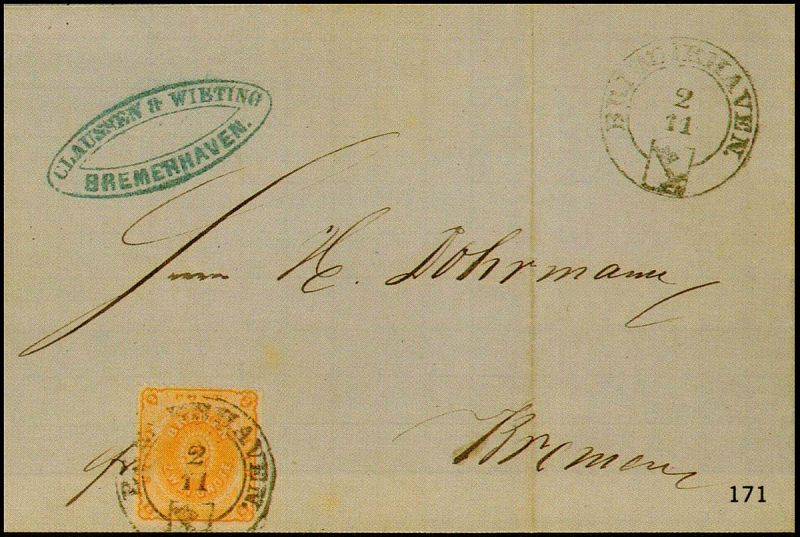 CLAUSSEN & WIETING
BREMERHAVEN.
BREMERHAVEN.
2
11
Herrn H. Dohrmann
Bremen
fr.
BREMERHAVEN.
2
11
171